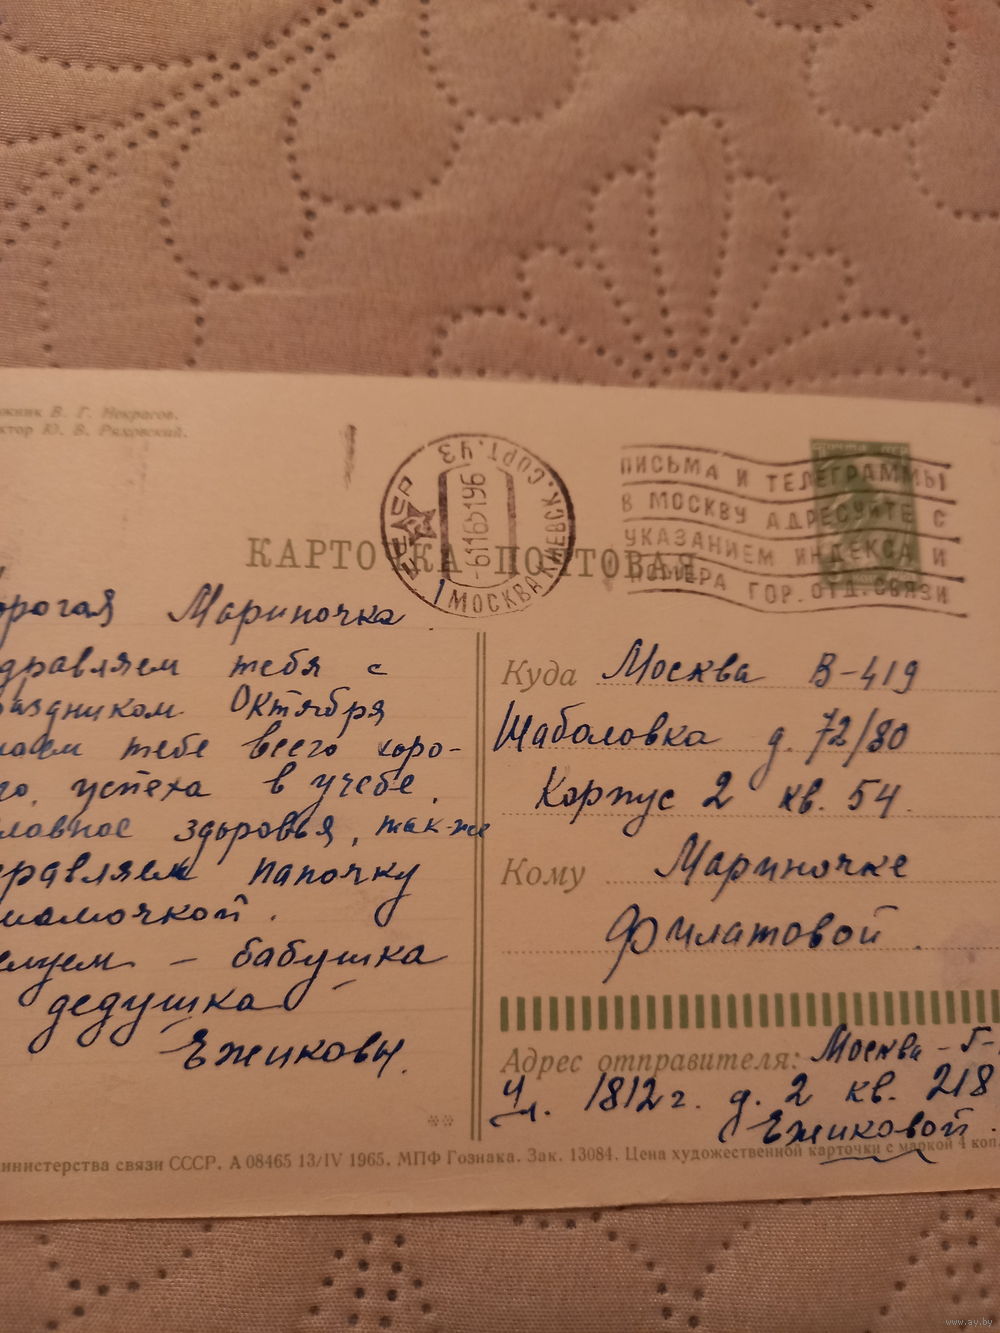 жник В. Г. Некрасов.
ктор Ю. В. Ряховский.
КАРТОЧКА ПОЧТОВАЯ
СССР
МОСКВА КИЕВСК. СОРТ. УЗ
-61165196
ПИСЬМА И ТЕЛЕГРАММЫ
В МОСКВУ АДРЕСУЙТЕ С
УКАЗАНИЕМ ИНДЕКСА И
НОМЕРА ГОР. ОТД. СВЯЗИ
орогая Мариночка
дравляем тебя с
аздником Октября
лаем тебе всего хоро-
го, успеха в учебе,
лавное здоровья, так-же
дравляем папочку
мамочкой.
елуем - бабушка
дедушка
Ежиковы.
Куда Москва В-419
Шаболовка д. 72/80
Корпус 2 кв. 54
Кому Мариночке
Филатовой.
Адрес отправителя: Москва - Г-
Ул. 1812 г. д. 2 кв. 218
Ежиковой.
инистерства связи СССР. А 08465 13/IV 1965. МПФ Гознака. Зак. 13084. Цена художественной карточки с маркой 4 коп.
www.ay.by